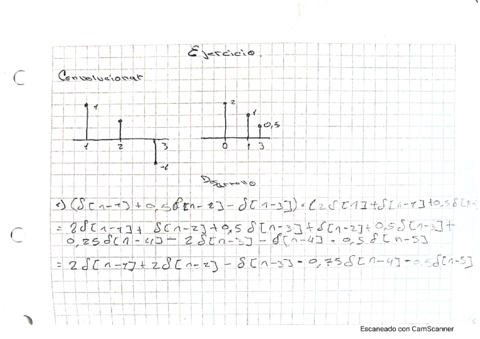 Ejercicio.
Convolucionar
1 2 1
0,5
1 2 3 0 1 3
-1
Desarrollo
(δ[n-1] + 0,5δ[n-2] - δ[n-3]) · (2δ[n] + δ[n-1] + 0,5δ[n-
= 2δ[n-1] + δ[n-2] + 0,5δ[n-3] + δ[n-2] + 0,5δ[n-3] +
0,25δ[n-4] - 2δ[n-3] - δ[n-4] - 0,5δ[n-5]
= 2δ[n-1] + 2δ[n-2] - δ[n-3] - 0,75δ[n-4] - 0,5δ[n-5]
Escaneado con CamScanner